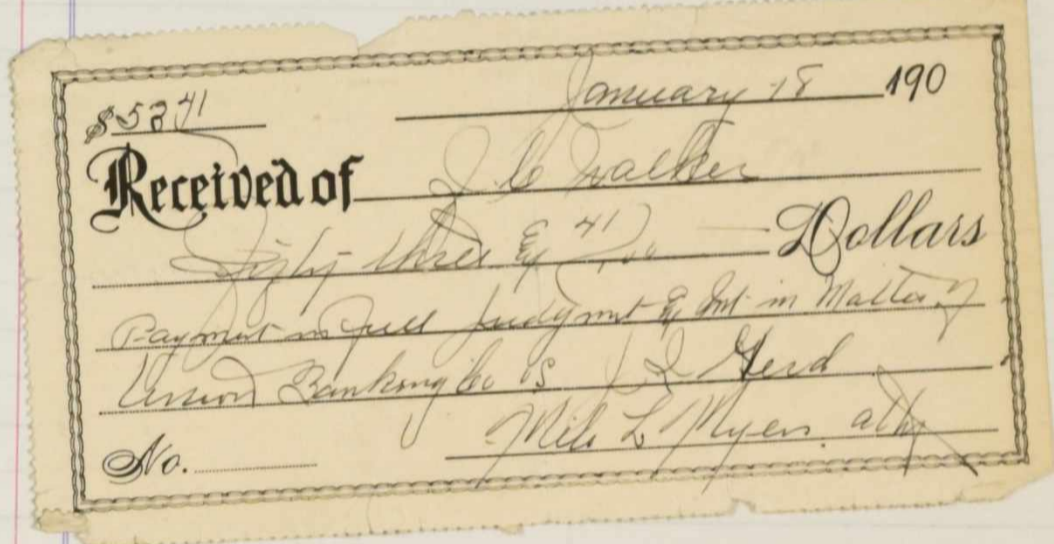 $53 41 January 18 190
Received of J C Walker
Fifty three & 41/100 Dollars
Payment in full Judgmnt & Int in Matter of
Union Banking Co vs J
Milo L Myers atty
No.